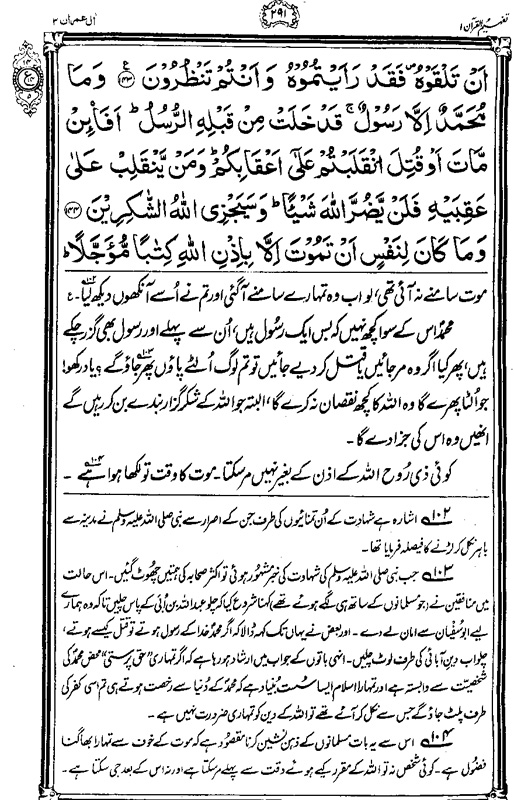 تفہیم القرآن ۱
۲۹۱
آل عمران ۳
اَنْ تَلْقَوْهُ ۪ فَقَدْ رَاَيْتُمُوْهُ وَ اَنْتُمْ تَنْظُرُوْنَ ﴿۱۴۳﴾ وَمَا
مُحَمَّدٌ اِلَّا رَسُوْلٌ ۚ قَدْ خَلَتْ مِنْ قَبْلِهِ الرُّسُلُ ؕ اَفَا۟ئِنْ
مَّاتَ اَوْ قُتِلَ انْقَلَبْتُمْ عَلٰٓى اَعْقَابِكُمْ ؕ وَمَنْ يَّنْقَلِبْ عَلٰى
عَقِبَيْهِ فَلَنْ يَّضُرَّ اللّٰهَ شَيْـًٔا ؕ وَ سَيَجْزِى اللّٰهُ الشّٰكِرِيْنَ ﴿۱۴۴﴾
وَمَا كَانَ لِنَفْسٍ اَنْ تَمُوْتَ اِلَّا بِاِذْنِ اللّٰهِ كِتٰبًا مُّؤَجَّلًا ؕ
موت سامنے نہ آئی تھی، لو اب وہ تمہارے سامنے آگئی اور تم نے اُسے آنکھوں دیکھ لیا۔ ع
محمدؐ اس کے سوا کچھ نہیں کہ بس ایک رسول ہیں، اُن سے پہلے اور رسول بھی گزر چکے
ہیں، پھر کیا اگر وہ مر جائیں یا قتل کر دیے جائیں تو تم لوگ اُلٹے پاؤں پھر جاؤ گے؟ یاد رکھو!
جو اُلٹا پھرے گا وہ اللہ کا کچھ نقصان نہ کرے گا، البتہ جو اللہ کے شکر گزار بندے بن کر رہیں گے
انھیں وہ اس کی جزا دے گا۔
کوئی ذی رُوح اللہ کے اذن کے بغیر نہیں مر سکتا۔ موت کا وقت تو لکھا ہوا ہے۔
۱۰۲ اشارہ ہے شہادت کے اُن تمنائیوں کی طرف جن کے اصرار سے نبی صلی اللہ علیہ وسلم نے مدینہ سے
باہر نکل کر لڑنے کا فیصلہ فرمایا تھا۔
۱۰۳ جب نبی صلی اللہ علیہ وسلم کی شہادت کی خبر مشہور ہوئی تو اکثر صحابہ کی ہمتیں چھوٹ گئیں۔ اس حالت
میں منافقین نے (جو مسلمانوں کے ساتھ ہی لگے ہوئے تھے) کہنا شروع کیا کہ چلو عبداللہ بن اُبی کے پاس چلیں تاکہ وہ ہمارے
لیے ابوسفیان سے امان لے دے۔ اور بعض نے یہاں تک کہہ ڈالا کہ اگر محمدؐ خدا کے رسول ہوتے تو قتل کیسے ہوتے،
چلو اب دینِ آبائی کی طرف لوٹ چلیں۔ انہی باتوں کے جواب میں ارشاد ہو رہا ہے کہ اگر تمہاری ”حق پرستی“ محض محمدؐ کی
شخصیت سے وابستہ ہے اور تمہارا اسلام ایسا سست بنیاد ہے کہ محمدؐ کے دُنیا سے رخصت ہوتے ہی تم اسی کفر کی
طرف پلٹ جاؤ گے جس سے نکل کر آئے تھے تو اللہ کے دین کو تمہاری ضرورت نہیں ہے۔
۱۰۴ اس سے یہ بات مسلمانوں کے ذہن نشین کرنا مقصود ہے کہ موت کے خوف سے تمہارا بھاگنا
فضول ہے۔ کوئی شخص نہ تو اللہ کے مقرر کیے ہوئے وقت سے پہلے مر سکتا ہے اور نہ اس کے بعد جی سکتا ہے۔